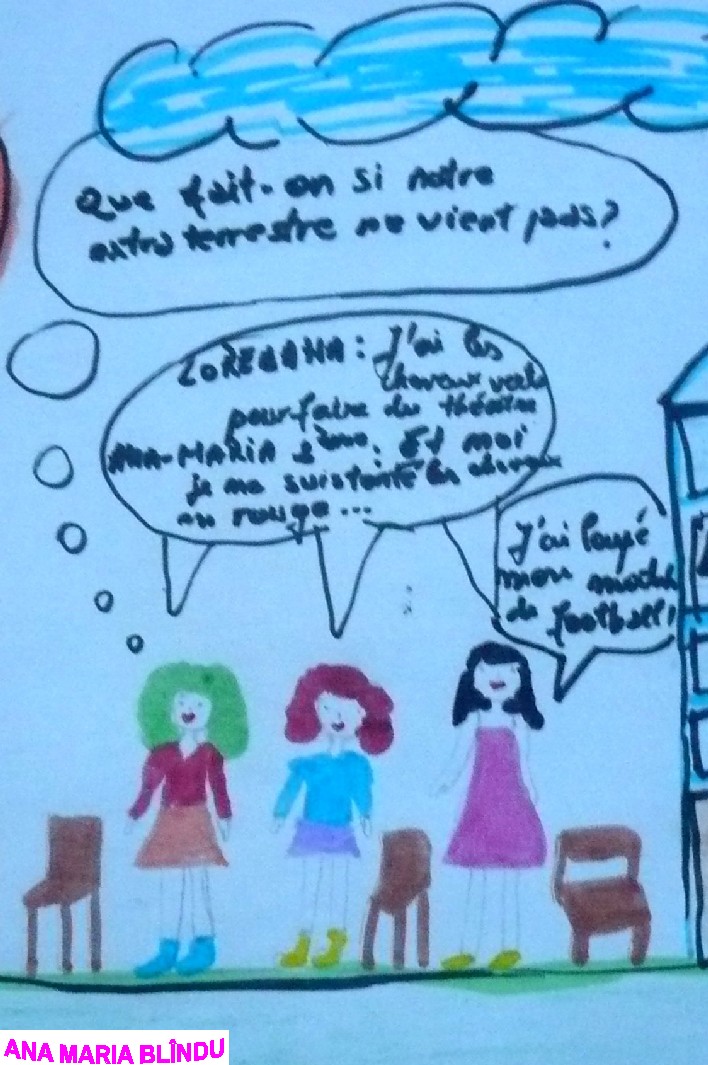 Que fait-on si notre
extra terrestre ne vient pas?
LOREDANA: J'ai les
cheveux verts
pour faire du théâtre
ANA-MARIA : Et moi
je me suis teinté les cheveux
en rouge...
J'ai loupé
mon match
de football!
ANA MARIA BLÎNDU